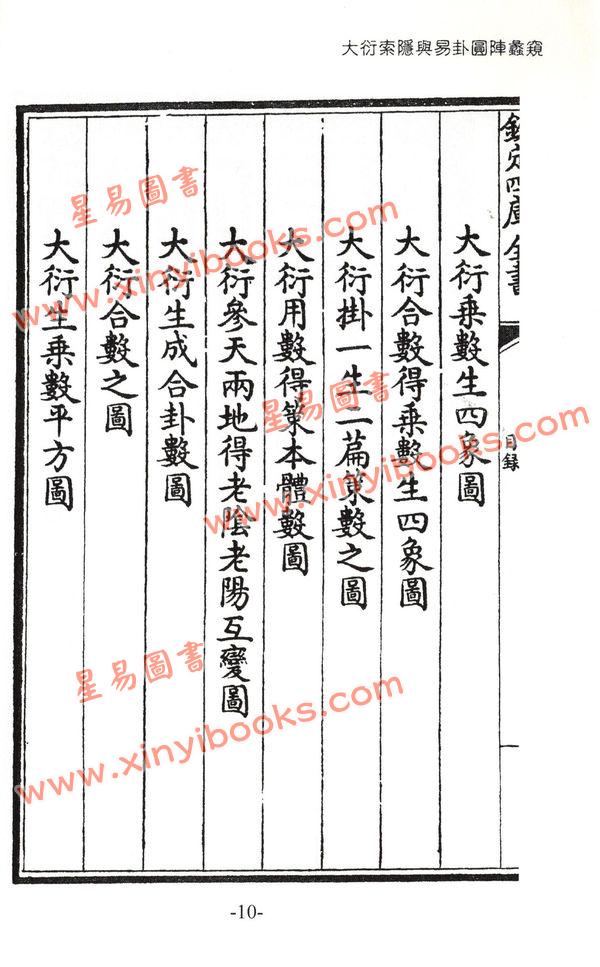 大衍索隱與易卦圓陣蠡窺
欽定四庫全書
目錄
大衍乘數生四象圖
大衍合數得乘數生四象圖
大衍掛一生二篇策數之圖
大衍用數得策本體數圖
大衍參天兩地得老陰老陽互變圖
大衍生成合卦數圖
大衍合數之圖
大衍生乘數平方圖
星易圖書
www.xinyibooks.com
星易圖書
www.xinyibooks.com
星易圖書
www.xinyibooks.com
-10-